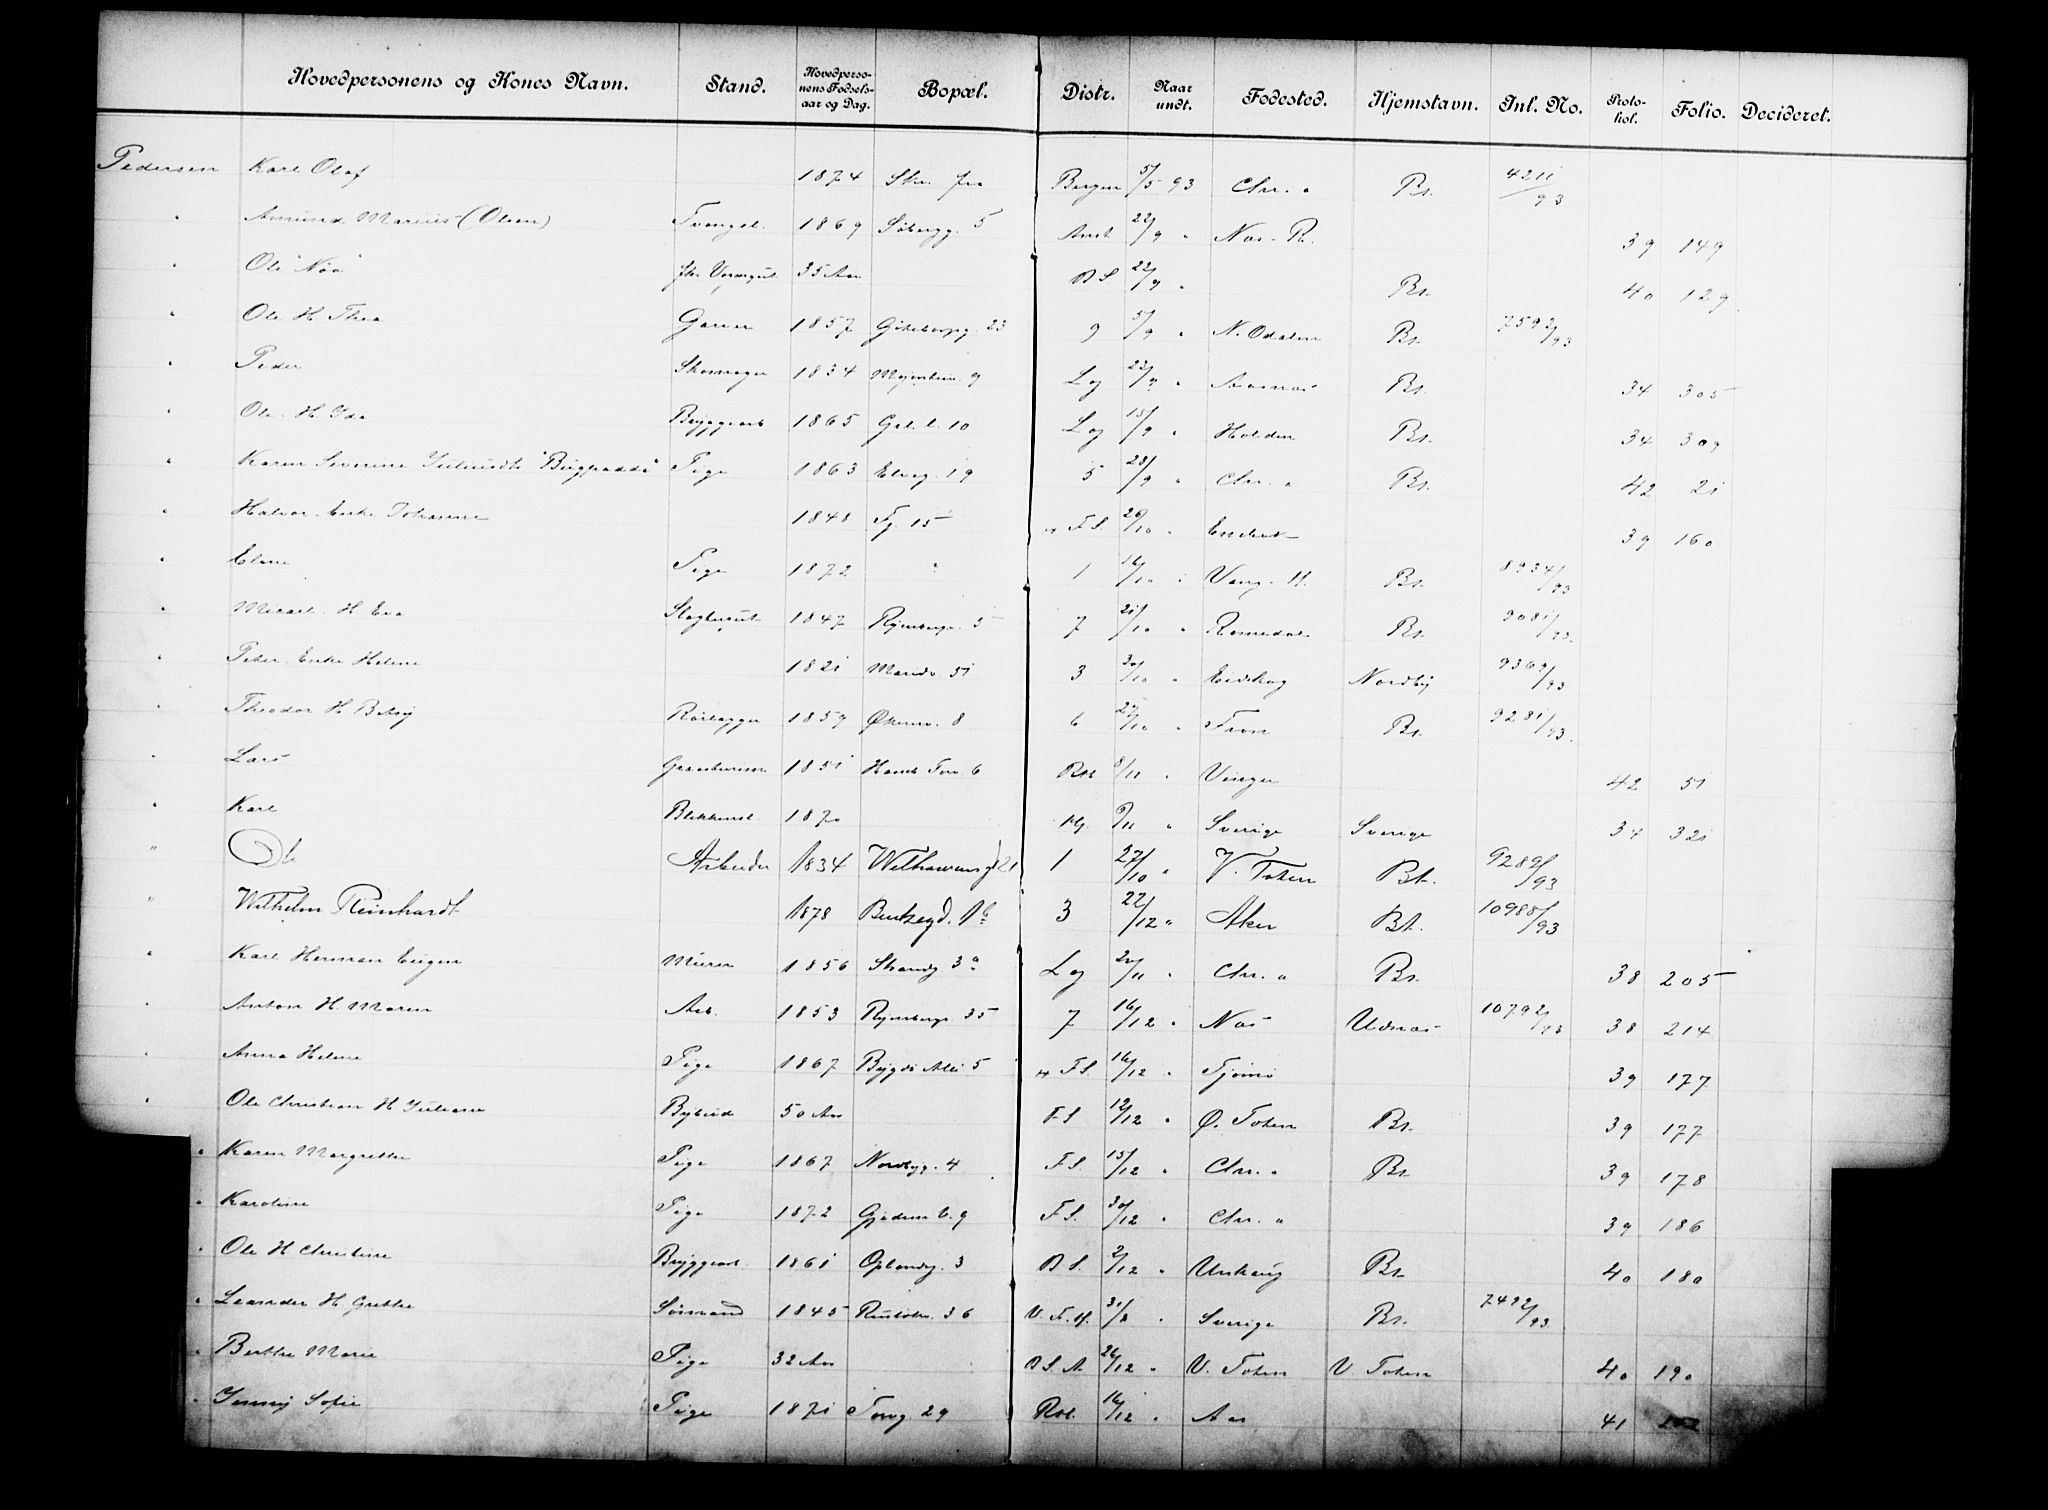 Hovedpersonens og Kones Navn. Stand. Hovedpersonens Fødselsaar og Dag. Bopæl. Distr. Naar undt. Fødested. Hjemstavn. Inl. No. Protokol. Folio. Decideret.
Pedersen Karl Olaf 1874 Skr. fra Bergen 5/5 93 Chr. a Bt. 4211/93
" Amund Marius (Olsen) Tvangsl. 1869 Søbergg. 5 22/9 " Nes - R. 39 149
" Ole "Nøa" 35 Aar D S. 22/9 " Bt. 40 129
" Ole H. Thea Garver 1857 Gøteborgg. 23 9 5/9 " N. Odalen Bt. 7592/93
" Peder Skomager 1834 9 Lg 22/9 " Aasnes Bt. 34 305
" Ole H. Ida Bryggearb 1865 Grl. l. 10 Lg 15/9 " Holden Bt. 34 309
" Karen Severine "Bugpadda" Pige 1863 Elveg. 19 5 28/9 " Chr. a Bt. 42 21
" Halvor Enke Johanne 1848 Fg. 15 F.S. 26/10 " 39 160
" Eline Pige 1872 " 1 16/10 " Vang - H. Bt. 8934/93
" Mikael H Eva Slagtersvt. 1847 Rjenbergg. 5 7 21/10 " Romedal Bt. 9081/93
" Peter Enke Helene 1821 Maridv. 51 3 30/10 " Eidskog Nordby 9369/93
" Theodor H Betsy Rørlægger 1859 Økernv. 8 6 27/10 " Fron Bt. 9281/93
" Lars 1851 Hamb Torv 6 Rst. 8/11 " Vinger 42 51
" Karl Blikkensl. 1870 9/11 " Sverige Sverige 34 321
" Ole Arbeider 1834 Welhavensgd 21 1 27/10 " V. Toten Bt. 9289/93
" Wilhelm Reinhardt 1878 Bentsegd. 1b 3 22/12 " Aker Bt. 10988/93
" Karl Herman Eugen Murer 1856 Strandg 3a Lg 20/11 " Chr. a Bt. 38 205
" Anton H. Maren Arb. 1853 Rjenbergg. 35 7 16/12 " Nes Udnes 10792/93 38 214
" Anna Helene Pige 1867 Bygdø Allé 5 F.S. 16/12 " Tjømø 39 177
" Ole Christian H Juliane Bybud 50 Aar F.S 12/12 " Ø. Toten Bt. 39 177
" Karen Margrethe Pige 1867 Nordbyg. 4 F.S. 15/12 " Chr. a Bt 39 178
" Karoline Pige 1872 Gjedem b. 9 F.S. 30/12 " Chr. a 39 186
" Ole H Christine Bryggearb. 1861 Oplandg. 3 D S. 2/12 " Urskoug Bt. 40 180
" Leander H Grethe Sømand 1845 Ruseløkv. 36 V. F. H. 31/8 " Sverige Bt. 7492/93
" Berthe Marie Pige 32 Aar D S. A. 26/12 " V. Toten V Toten 40 190
" Jenny Sofie Pige 1871 Torvg 29 Rst. 16/12 " Aas 41